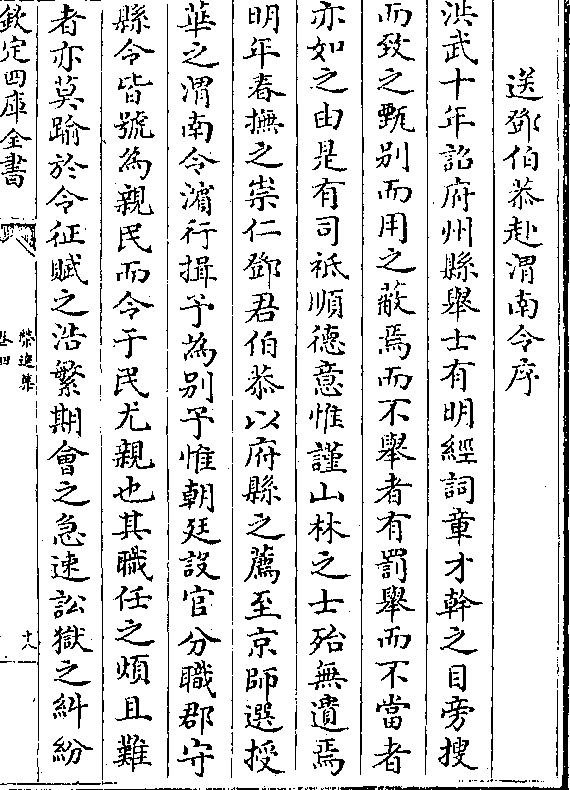 送鄧伯恭赴渭南令序
洪武十年詔府州縣舉士有明經詞章才幹之目旁搜
而致之甄别而用之蔽焉而不舉者有罰舉而不當者
亦如之由是有司祗順德意惟謹山林之士殆無遺焉
明年春撫之崇仁鄧君伯恭以府縣之薦至京師選授
華之渭南令濵行揖予為别予惟朝廷設官分職郡守
縣令皆號為親民而令于民尤親也其職任之煩且難
者亦莫踰於令征賦之浩繁期會之急速訟獄之糾紛
欽定四庫全書
卷四
十八